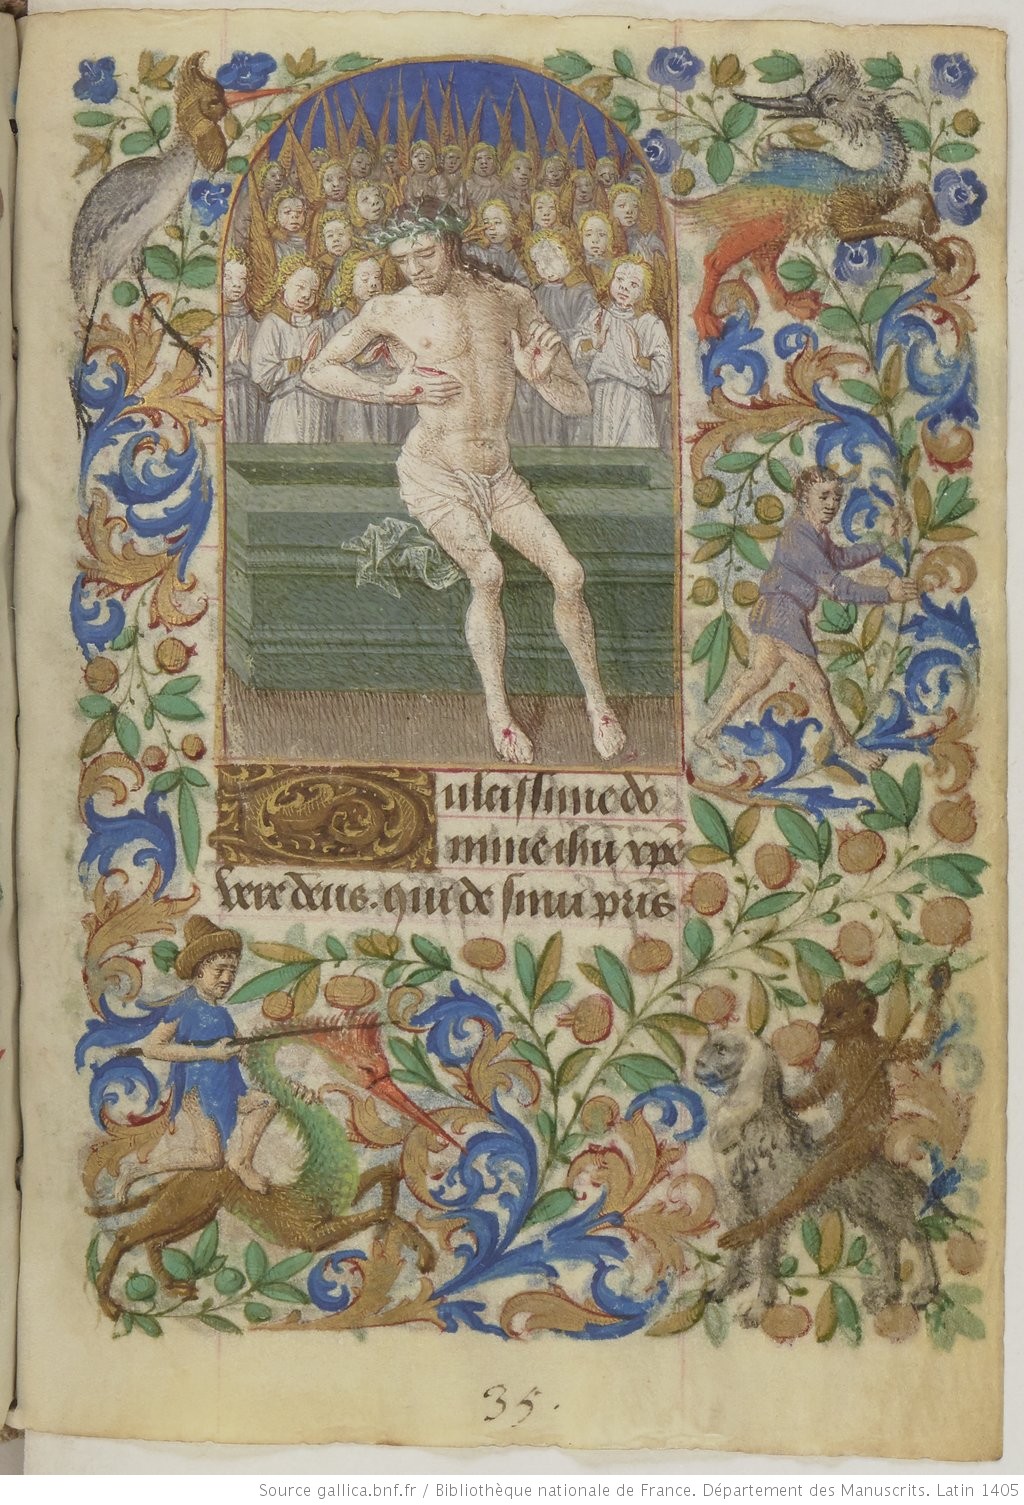 ulcissime do
mine ihu xpe
vere deus. qui de sinu pris
35.
Source gallica.bnf.fr / Bibliothèque nationale de France. Département des Manuscrits. Latin 1405